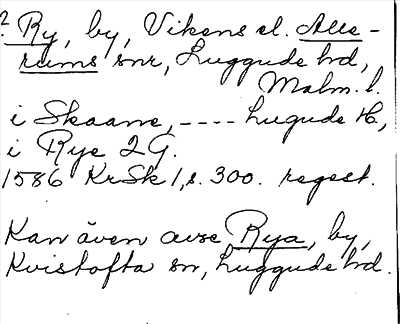 ? Ry, by, Vikens el. Alle-
rums snr, Luggude hd,
Malm. l.
i Skaane, ---- Lugude H,
i Rye 2 G.
1586 KrSk 1, s. 300. regest.
Kan även avse Rya, by,
Kvistofta sn, Luggude hd.